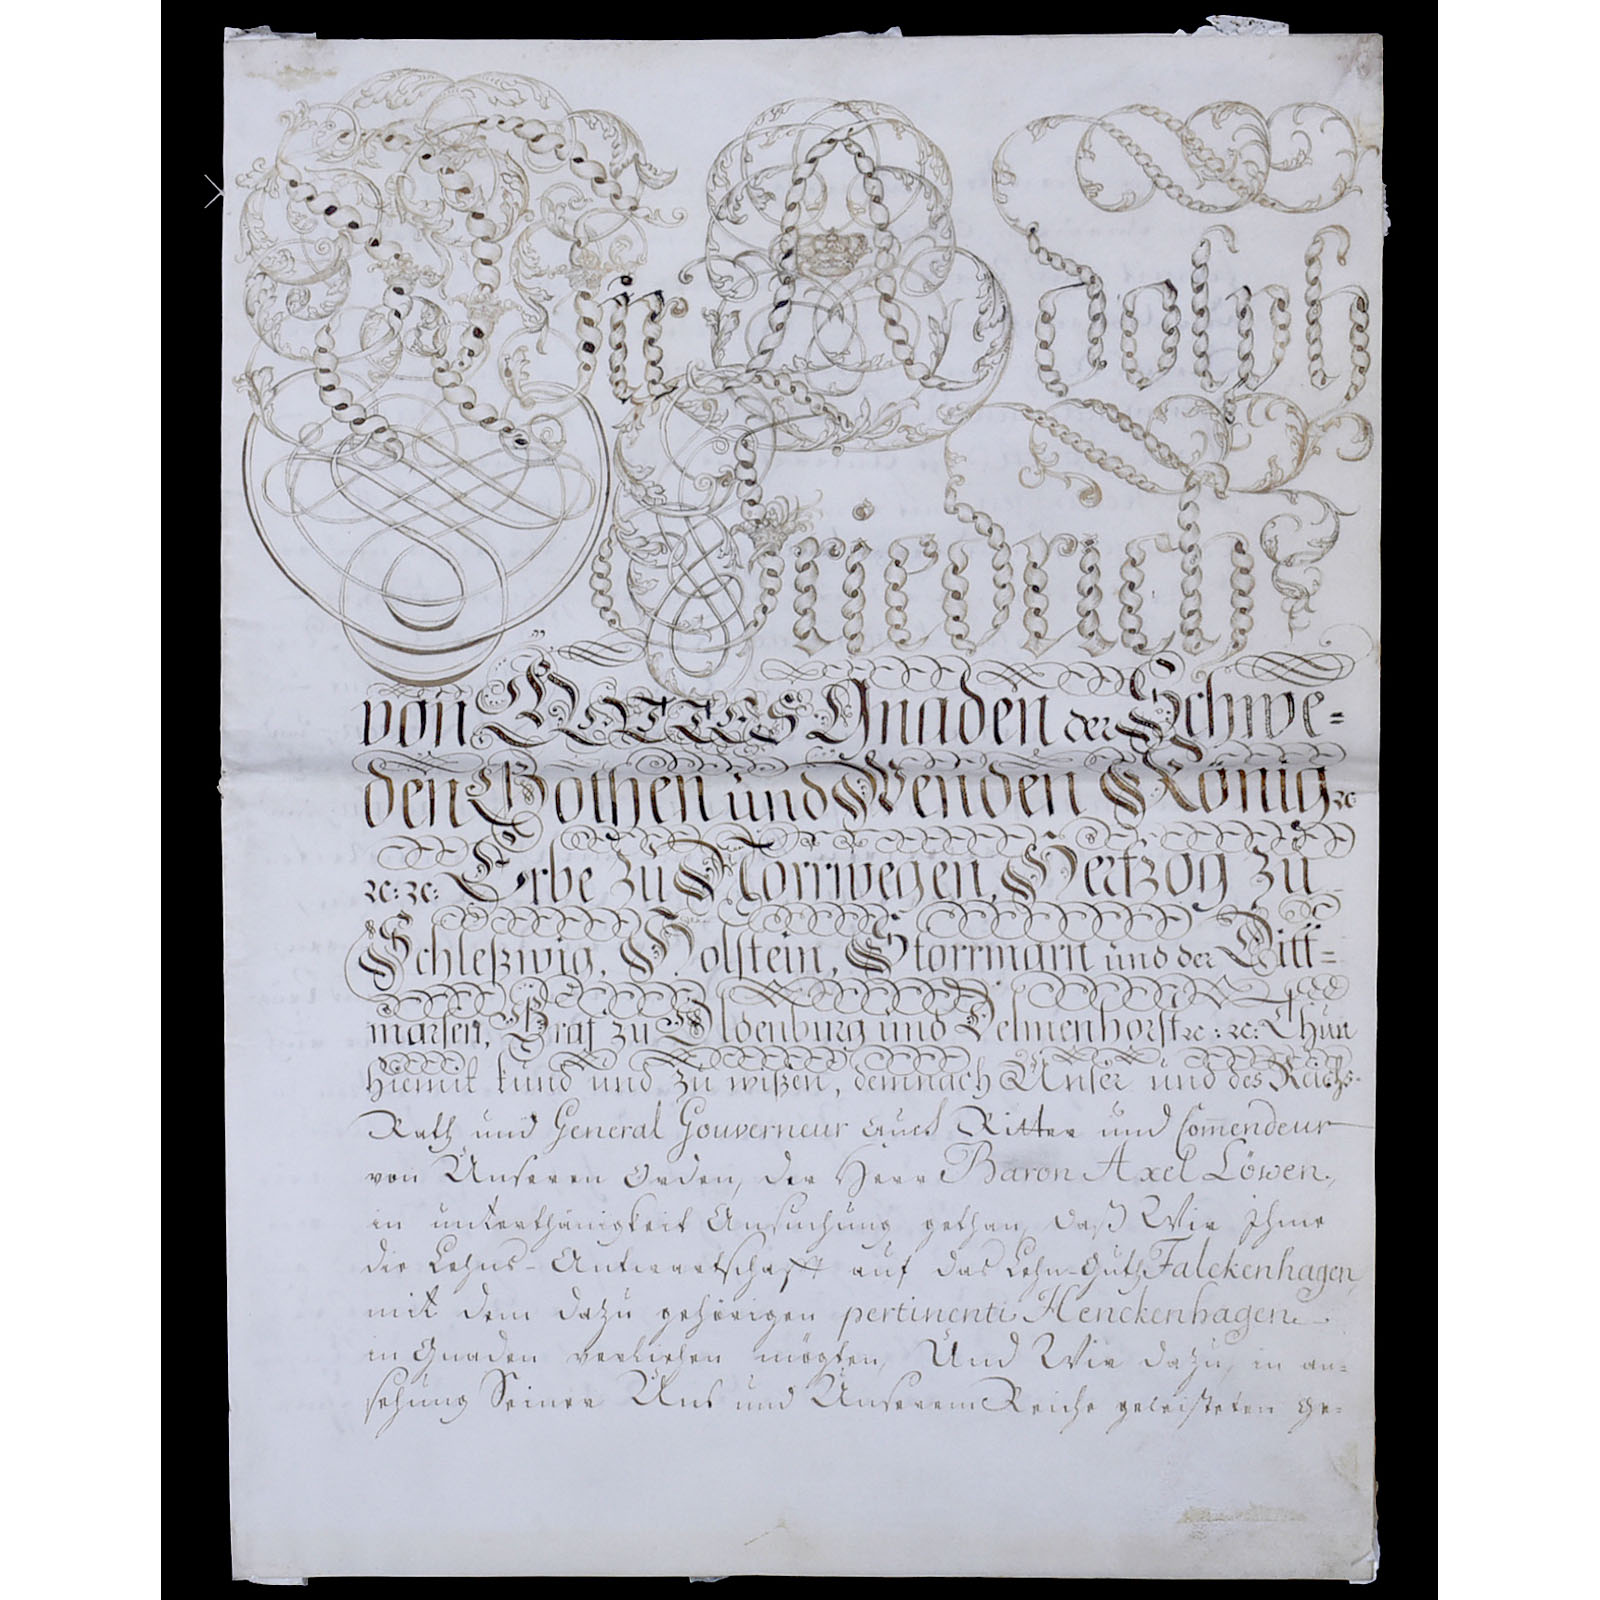 Wir Adolph
Friedrich
von GOTTES Gnaden der Schwe=
den Gothen und Wenden König ꝛc
ꝛc: ꝛc: Erbe zu Norrwegen, Hertzog zu
Schleßwig, Holstein, Storrmarn und der Ditt=
marsen, Graf zu Oldenburg und Delmenhorst ꝛc: ꝛc: Thun
hiemit kund und zu wißen, demnach Unser und des Reichs-
Rath und General Gouverneur auch Ritter und Com̄endeur
von Unseren Orden, der Herr Baron Axel Löwen,
in unterthänigkeit Ansuchung gethan, daß Wir Ihme
die Lehns-Antwartschafft auf das Lehn-Guth Falckenhagen,
mit dem dazu gehörigen pertinenti Henckenhagen
in Gnaden verliehen mögten, Und Wir dazu, in an=
sehung Seiner Uns und Unserem Reiche geleisteten ge=